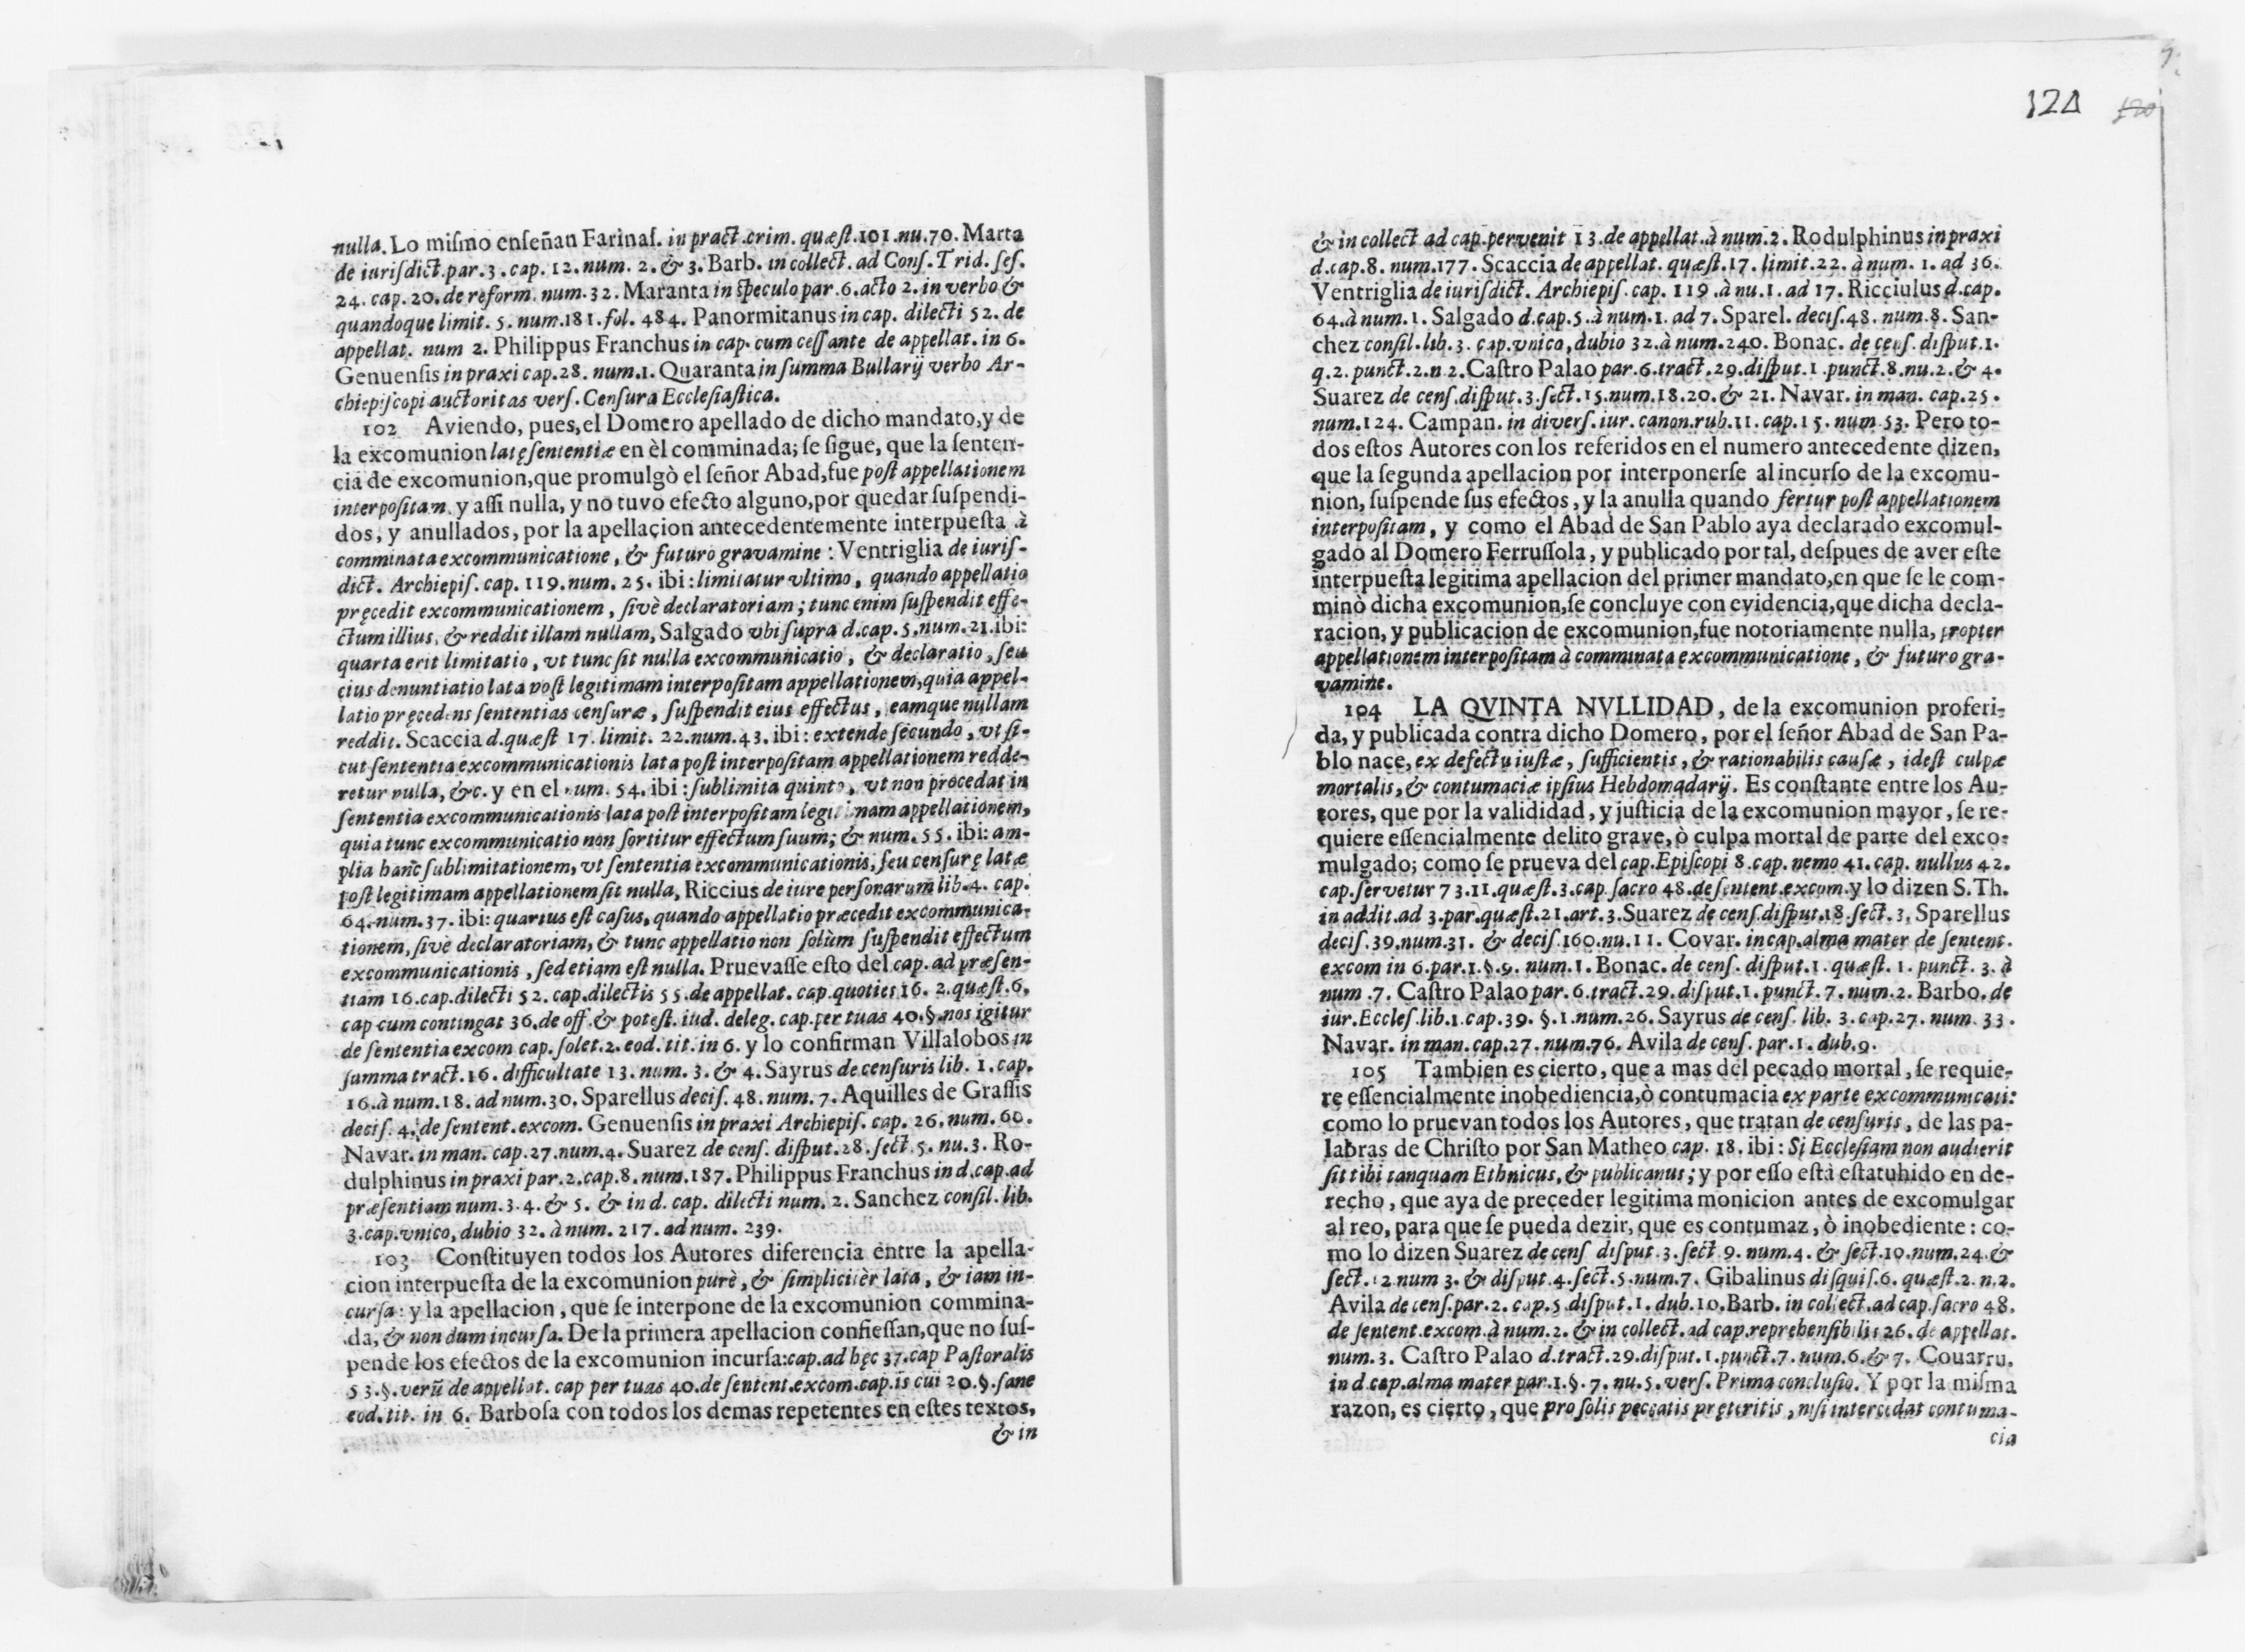 nulla. Lo miſmo enſeñan Farinaſ. in pract.crim. quæſt.101.nu.70. Marta
de iuriſdict.par.3.cap. 12.num. 2. & 3. Barb. in collect. ad Conſ. Trid. ſeſ.
24. cap. 20. de reform. num. 32. Maranta in ſpeculo par.6.acto 2. in verbo &
quandoque limit. 5. num.181. fol. 484. Panormitanus in cap. dilecti 52. de
appellat. num 2. Philippus Franchus in cap. cum ceſſante de appellat. in 6.
Genuenſis in praxi cap.28. num.1. Quaranta in ſumma Bullarij verbo Ar-
chiepiſcopi auctoritas verſ. Cenſura Eccleſiaſtica.
102 Aviendo, pues, el Domero apellado de dicho mandato, y de
la excomunion latę ſententiæ en èl comminada; ſe ſigue, que la ſenten-
cia de excomunion, que promulgò el ſeñor Abad, fue poſt appellationem
interpoſitam. y aſſi nulla, y no tuvo efecto alguno, por quedar ſuſpendi-
dos, y anullados, por la apellaçion antecedentemente interpueſta à
comminata excommunicatione, & futuro gravamine: Ventriglia de iuriſ-
dict. Archiepiſ. cap. 119. num. 25. ibi: limitatur vltimo, quando appellatio
pręcedit excommunicationem, ſivè declaratoriam; tunc enim ſuſpendit effe-
ctum illius, & reddit illam nullam, Salgado vbi ſupra d.cap. 5. num.21.ibi:
quarta erit limitatio, vt tunc ſit nulla excommunicatio, & declaratio, ſeu
eius denuntiatio lata poſt legitimam interpoſitam appellationem, quia appel-
latio pręcedens ſententias cenſuræ, ſuſpendit eius effectus, eamque nullam
reddit. Scaccia d.quæſt 17. limit. 22.num.43. ibi: extende ſecundo, vt ſi-
cut ſententia excommunicationis lata poſt interpoſitam appellationem redde-
retur nulla, &c. y en el num. 54. ibi: ſublimita quinto, vt non procedat in
ſententia excommunicationis lata poſt interpoſitam legitimam appellationem,
quia tunc excommunicatio non ſortitur effectum ſuum; & num. 55. ibi: am-
plia hanc ſublimitationem, vt ſententia excommunicationis, ſeu cenſurę latæ
poſt legitimam appellationem ſit nulla, Riccius de iure perſonarum lib.4. cap.
64. num. 37. ibi: quartus eſt caſus, quando appellatio præcedit excommunica-
tionem, ſivè declaratoriam, & tunc appellatio non ſolùm ſuſpendit effectum
excommunicationis, ſed etiam eſt nulla. Pruevaſſe eſto del cap. ad præſen-
tiam 16.cap.dilecti 52. cap.dilectis 55.de appellat. cap.quoties 16. 2.quæſt.6.
cap cum contingat 36.de off. & poteſt. iud. deleg. cap.per tuas 40.§.nos igitur
de ſententia excom cap. ſolet.2. eod. tit. in 6. y lo confirman Villalobos in
ſumma tract.16. difficultate 13. num. 3. & 4. Sayrus de cenſuris lib. 1. cap.
16.à num.18. ad num.30. Sparellus deciſ. 48. num. 7. Aquilles de Graſſis
deciſ. 4. de ſentent. excom. Genuenſis in praxi Archiepiſ. cap. 26. num. 60.
Navar. in man. cap.27.num.4. Suarez de cenſ. diſput.28. ſect. 5. nu.3. Ro-
dulphinus in praxi par.2.cap.8. num.187. Philippus Franchus in d.cap.ad
præſentiam num.3.4. & 5. & in d. cap. dilecti num. 2. Sanchez conſil. lib.
3.cap.vnico, dubio 32. à num. 217. ad num. 239.
103 Conſtituyen todos los Autores diferencia entre la apella-
cion interpueſta de la excomunion purè, & ſimplicitèr lata, & iam in-
curſa: y la apellacion, que ſe interpone de la excomunion commina-
da, & non dum incurſa. De la primera apellacion confieſſan, que no ſuſ-
pende los efectos de la excomunion incurſa: cap.ad hęc 37.cap Paſtoralis
53.§. verũ de appellat. cap per tuas 40.de ſentent.excom.cap.is cui 20.§.ſane
eod. tit. in 6. Barboſa con todos los demas repetentes en eſtes textos,
& in
124 120
& in collect ad cap.pervenit 13.de appellat.à num.2. Rodulphinus in praxi
d.cap.8. num.177. Scaccia de appellat. quæſt.17. limit.22. à num. 1. ad 36.
Ventriglia de iuriſdict. Archiepiſ. cap. 119.à nu.1. ad 17. Ricciulus d.cap.
64.à num.1. Salgado d.cap.5.à num.1. ad 7. Sparel. deciſ.48. num.8. San-
chez conſil. lib. 3. cap.vnico, dubio 32.à num.240. Bonac. de cenſ. diſput.1.
q.2. punct.2.n 2. Caſtro Palao par.6.tract.29.diſput.1.punct.8.nu.2.& 4.
Suarez de cenſ.diſput.3.ſect.15.num.18.20.& 21. Navar. in man. cap.25.
num.124. Campan. in diverſ. iur. canon.rub.11. cap.15. num 53. Pero to-
dos eſtos Autores con los referidos en el numero antecedente dizen,
que la ſegunda apellacion por interponerſe al incurſo de la excomu-
nion, ſuſpende ſus efectos, y la anulla quando fertur poſt appellationem
interpoſitam, y como el Abad de San Pablo aya declarado excomul-
gado al Domero Ferruſſola, y publicado por tal, deſpues de aver eſte
interpueſta legitima apellacion del primer mandato, en que ſe le com-
minò dicha excomunion, ſe concluye con evidencia, que dicha decla-
racion, y publicacion de excomunion, fue notoriamente nulla, propter
appellationem interpoſitam à comminata excommunicatione, & futuro gra-
vamine.
104 LA QVINTA NVLLIDAD, de la excomunion proferi-
da, y publicada contra dicho Domero, por el ſeñor Abad de San Pa-
blo nace, ex defectu iuſtæ, ſufficientis, & rationabilis cauſæ, ideſt culpæ
mortalis, & contumaciæ ipſius Hebdomadarij. Es conſtante entre los Au-
tores, que por la valididad, y juſticia de la excomunion mayor, ſe re-
quiere eſſencialmente delito grave, ò culpa mortal de parte del exco-
mulgado; como ſe prueva del cap.Epiſcopi 8.cap. nemo 41. cap. nullus 42.
cap.ſervetur 73.11.quæſt.3.cap.ſacro 48.de ſentent.excom.y lo dizen S.Th.
in addit.ad 3.par.quæſt.21.art.3.Suarez de cenſ.diſput.18.ſect.3. Sparellus
deciſ. 39.num.31. & deciſ.160.nu.11. Covar. in cap.alma mater de ſentent.
excom in 6.par.1.§.9. num.1. Bonac. de cenſ. diſput.1. quæſt. 1. punct. 3. à
num .7. Caſtro Palao par. 6.tract.29.diſput.1. punct.7. num.2. Barbo. de
iur.Eccleſ.lib.1.cap.39. §.1.num.26. Sayrus de cenſ. lib. 3. cap.27. num. 33.
Navar. in man. cap.27. num.76. Avila de cenſ. par.1. dub.9.
105 Tambien es cierto, que a mas del pecado mortal, ſe requie-
re eſſencialmente inobediencia, ò contumacia ex parte excommunicati:
como lo pruevan todos los Autores, que tratan de cenſuris, de las pa-
labras de Chriſto por San Matheo cap. 18. ibi: Si Eccleſiam non audierit
ſit tibi tanquam Ethnicus, & publicanus; y por eſſo eſtà eſtatuhido en de-
recho, que aya de preceder legitima monicion antes de excomulgar
al reo, para que ſe pueda dezir, que es contumaz, ò inobediente: co-
mo lo dizen Suarez de cenſ diſput.3. ſect 9. num.4. & ſect.10.num.24.&
ſect.12 num 3. & diſput.4.ſect.5.num.7. Gibalinus diſquiſ.6. quæſt.2. n.2.
Avila de cenſ.par.2. cap.5.diſput.1. dub.10. Barb. in collect.ad cap.ſacro 48.
de ſentent.excom.à num.2. & in collect. ad cap.reprehenſibilis 26. de appellat.
num.3. Caſtro Palao d.tract.29.diſput.1.punct.7. num.6.& 7. Couarru.
in d cap.alma mater par.1.§. 7. nu.5. verſ. Prima concluſio. Y por la miſma
razon, es cierto, que pro ſolis peccatis pręteritis, niſi intercedat contuma-
cia